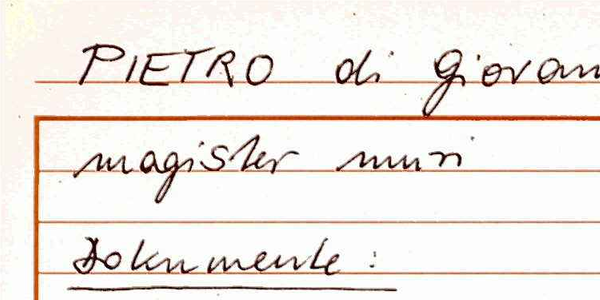 PIETRO di Giovan
magister muri
Dokumente: